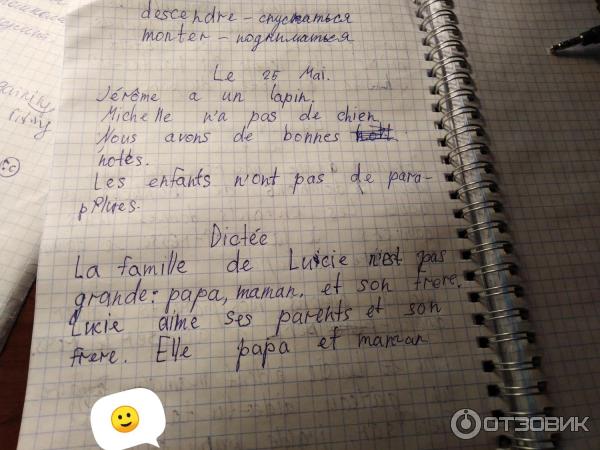 descendre – спускаться
monter – подниматься
Le 25 Mai.
Jérôme a un lapin.
Michelle n'a pas de chien
Nous avons de bonnes
notes.
Les enfants n'ont pas de para-
pluies.
Dictée
La famille de Lucie n'est pas
grande: papa, maman, et son frère.
Lucie aime ses parents et son
frere. Elle papa et maman
ОТЗОВИК